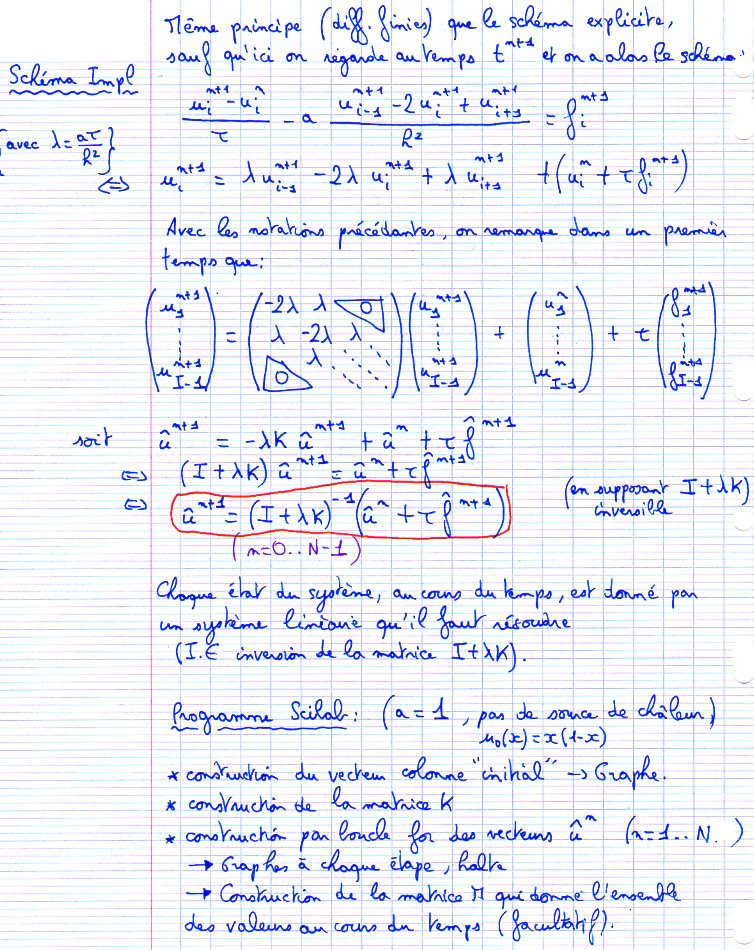 Même principe (diff. finies) que le schéma explicite,
sauf qu'ici on regarde au temps t^{n+1} et on a alors le schéma:
Schéma Impl
(u_i^{n+1} - u_i^n)/τ - a (u_{i-1}^{n+1} - 2u_i^{n+1} + u_{i+1}^{n+1})/h² = f_i^{n+1}
{avec λ = aτ/h²}
⇔ u_i^{n+1} = λ u_{i-1}^{n+1} - 2λ u_i^{n+1} + λ u_{i+1}^{n+1} + (u_i^n + τ f_i^{n+1})
Avec les notations précédantes, on remarque dans un premier
temps que:
(u_1^{n+1} ⋮ u_{I-1}^{n+1}) = (-2λ λ 0 λ -2λ λ 0 λ ⋱) (u_1^{n+1} ⋮ u_{I-1}^{n+1}) + (u_1^n ⋮ u_{I-1}^n) + τ (f_1^{n+1} ⋮ f_{I-1}^{n+1})
soit û^{n+1} = -λK û^{n+1} + û^n + τ f̂^{n+1}
⇔ (I + λK) û^{n+1} = û^n + τ f̂^{n+1}
⇔ û^{n+1} = (I + λK)^{-1} (û^n + τ f̂^{n+1}) (en supposant I + λK)
inversible
(n=0..N-1)
Chaque état du système, au cours du temps, est donné par
un système linéaire qu'il faut résoudre
(I.E inversion de la matrice I+λK).
Programme Scilab: (a = 1, pas de source de châleur,)
u_0(x) = x(1-x)
* construction du vecteur colonne "initial" → Graphe.
* construction de la matrice K
* construction par boucle for des vecteurs û^n (n=1..N.)
→ Graphes à chaque étape, halte
→ Construction de la matrice M qui donne l'ensemble
des valeurs au cours du temps (facultatif).